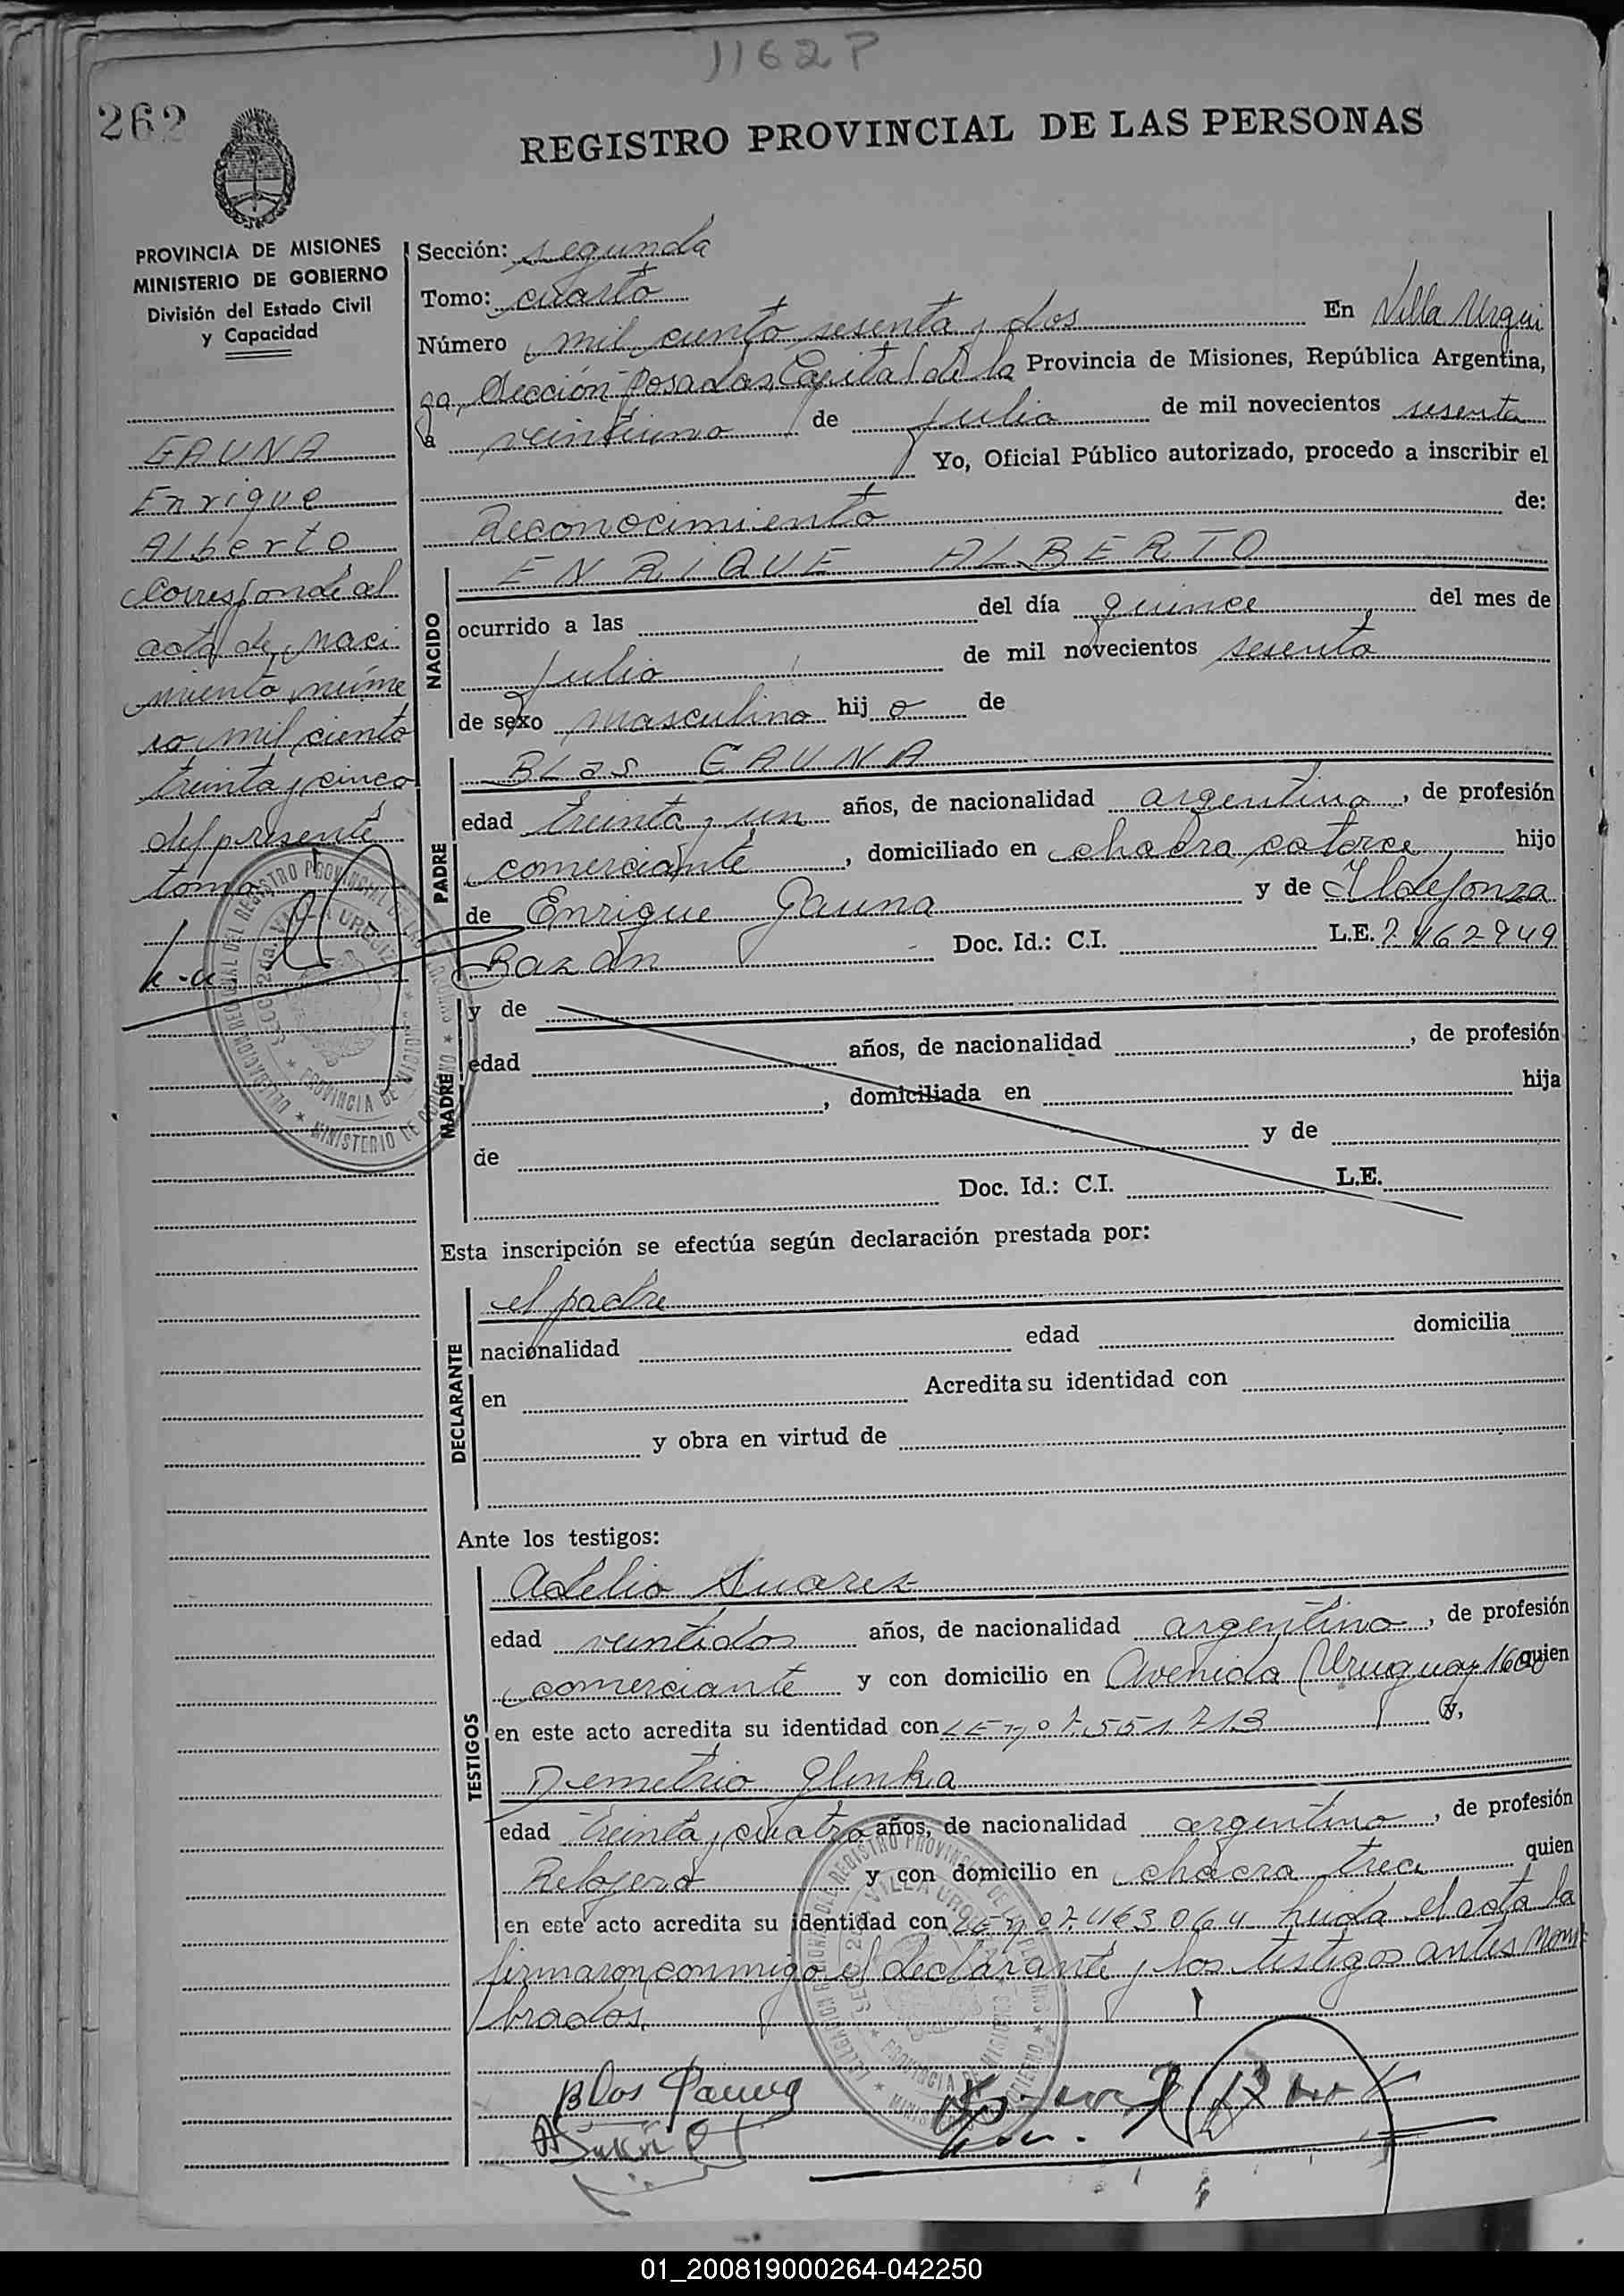 1162 P
262
REGISTRO PROVINCIAL DE LAS PERSONAS
PROVINCIA DE MISIONES
MINISTERIO DE GOBIERNO
División del Estado Civil
y Capacidad
GAUNA
Enrique
Alberto
Corresponde al
acta de naci
miento núme
ro mil ciento
treinta y cinco
del presente
tomo
Sección: segunda
Tomo: cuarto
Número mil ciento sesenta y dos En Villa Urqui
za, Sección Posadas, Capital de la Provincia de Misiones, República Argentina,
a veintiuno de julio de mil novecientos sesenta
Yo, Oficial Público autorizado, procedo a inscribir el
Reconocimiento de:
NACIDO
ENRIQUE ALBERTO
ocurrido a las del día quince del mes de
julio de mil novecientos sesenta
de sexo masculino hijo de
PADRE
Blas GAUNA
edad treinta y un años, de nacionalidad argentina, de profesión
comerciante, domiciliado en chacra catorce hijo
de Enrique Gauna y de Ildefonza
Bazán Doc. Id.: C.I. L.E. 7.462949
MADRE
y de
edad años, de nacionalidad , de profesión
, domiciliada en hija
de y de
Doc. Id.: C.I. L.E.
Esta inscripción se efectúa según declaración prestada por:
DECLARANTE
el padre
nacionalidad edad domicilia
en Acredita su identidad con
y obra en virtud de
Ante los testigos:
TESTIGOS
Adelio Suarez
edad veintidos años, de nacionalidad argentino, de profesión
comerciante y con domicilio en Avenida Uruguay 1600 quien
en este acto acredita su identidad con LE nº 7.551713 y,
Demetrio Glinka
edad treinta y cuatro años, de nacionalidad argentino, de profesión
Relojero y con domicilio en chacra trece quien
en este acto acredita su identidad con LE nº 7.463064 leida el acta la
firmaron conmigo el declarante y los testigos antes nom
brados.
Blas Gauna
01_200819000264-042250